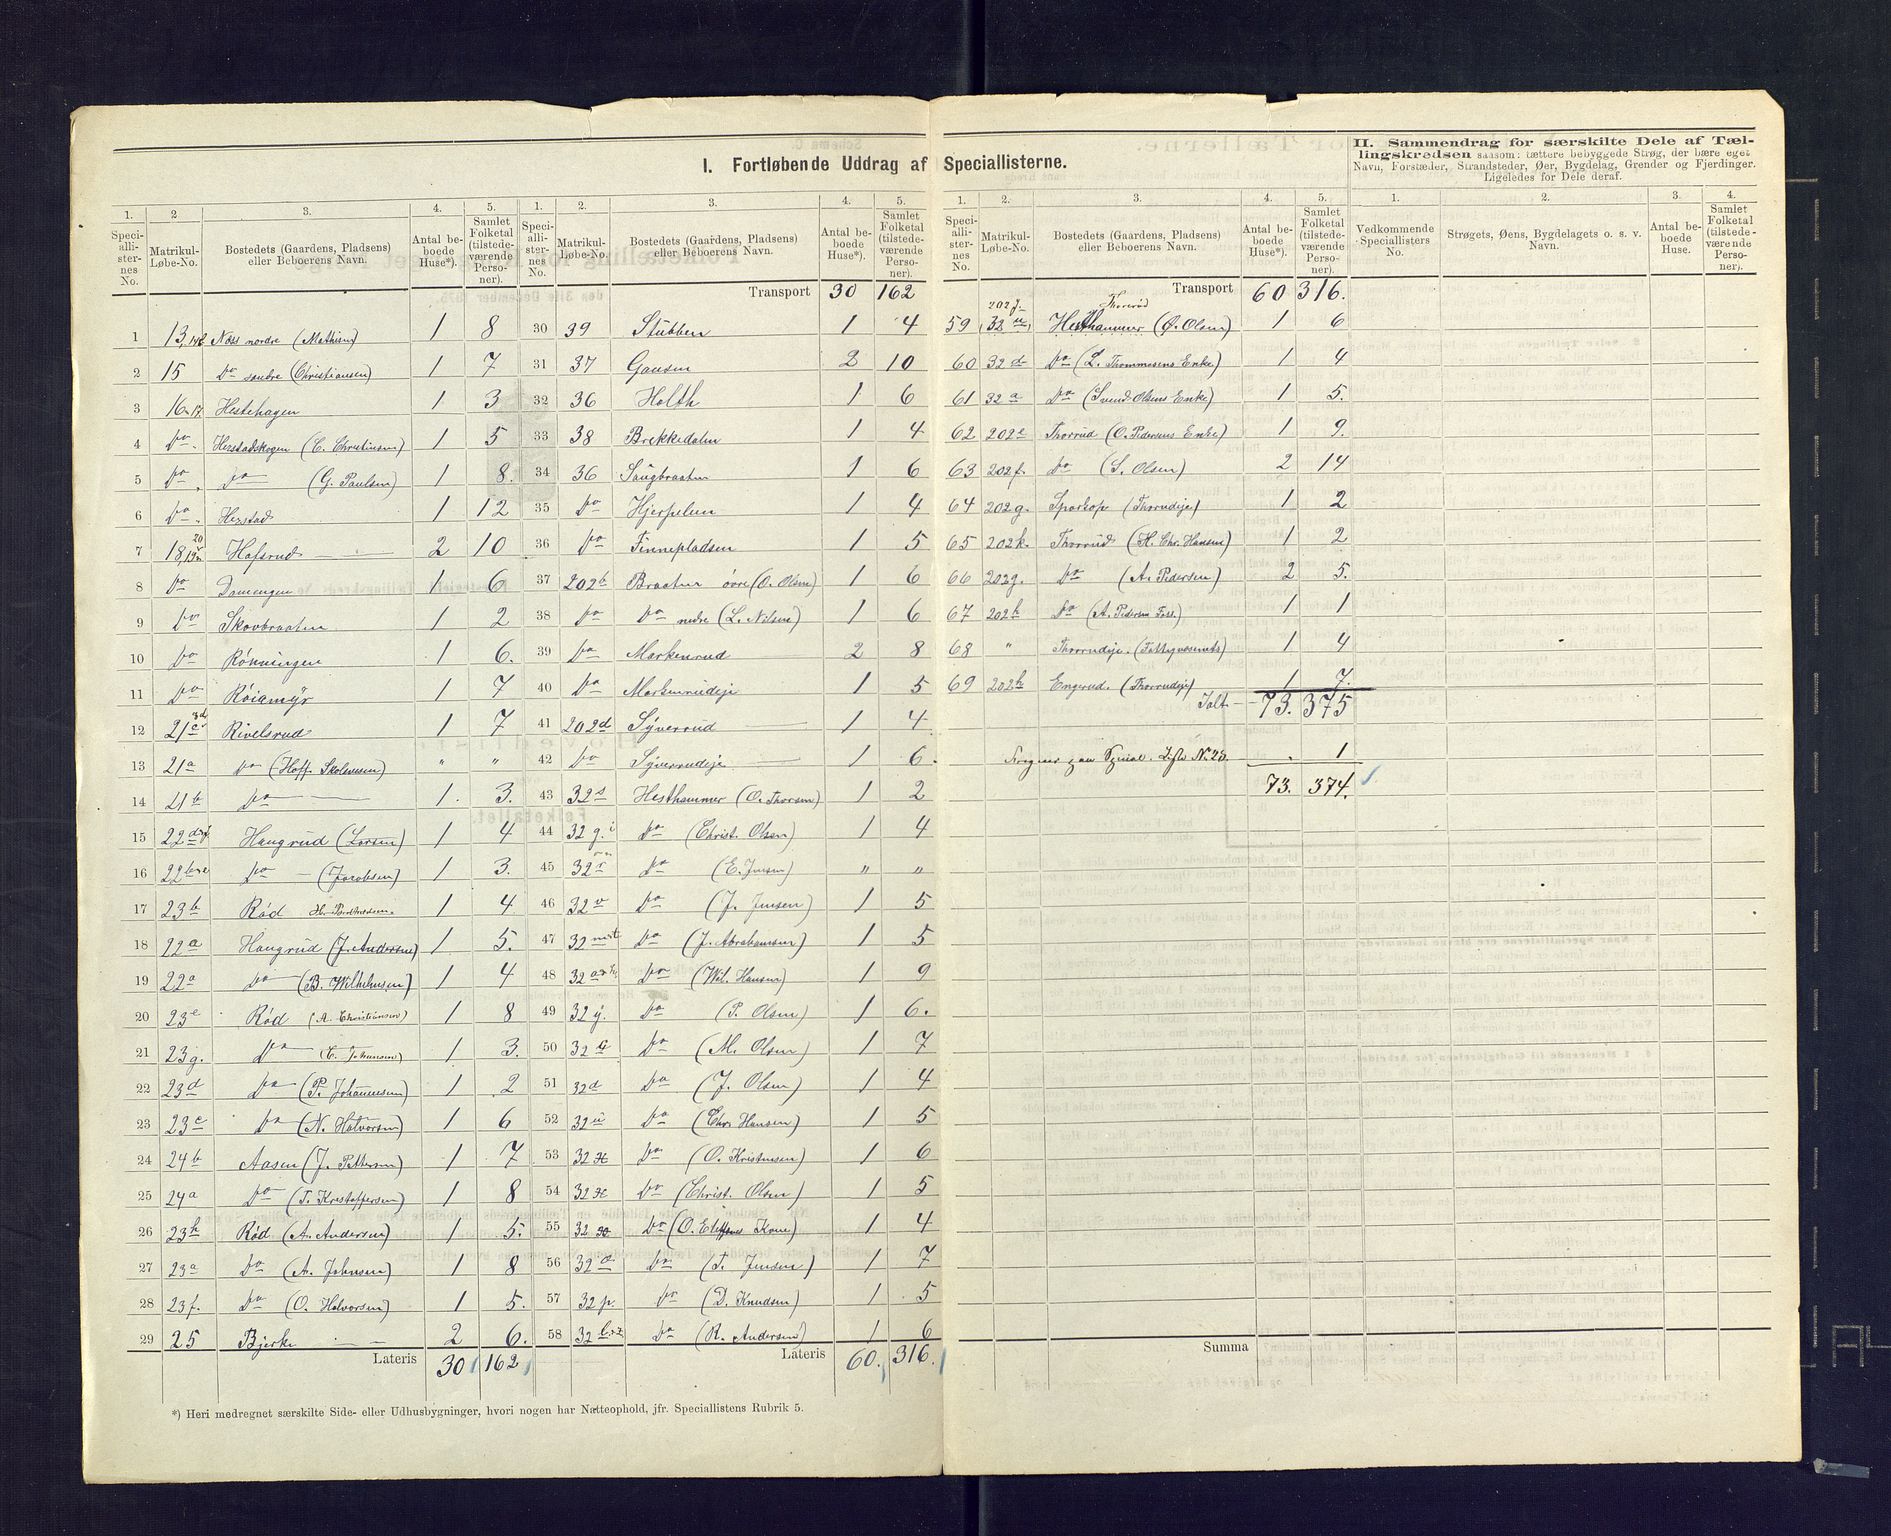 I. Fortløbende Uddrag af Speciallisterne.
II. Sammendrag for særskilte Dele af Tæl-
lingskredsen saasom: tættere bebyggede Strøg, der bære eget
Navn, Forstæder, Strandsteder, Øer, Bygdelag, Grender og Fjerdinger.
Ligeledes for Dele deraf.
1. 2 3. 4. 5. 1. 2. 3. 4. 5. 1. 2. 3. 4. 5. 1. 2. 3. 4.
Speciallisternes No. Matrikul-Løbe-No. Bostedets (Gaardens, Pladsens) eller Beboerens Navn. Antal beboede Huse*). Samlet Folketal (tilstedeværende Personer).
Speciallisternes No. Matrikul-Løbe-No. Bostedets (Gaardens, Pladsens) eller Beboerens Navn. Antal beboede Huse*). Samlet Folketal (tilstedeværende Personer).
Speciallisternes No. Matrikul-Løbe-No. Bostedets (Gaardens, Pladsens) eller Beboerens Navn. Antal beboede Huse*). Samlet Folketal (tilstedeværende Personer).
Vedkommende Speciallisters No. Strøgets, Øens, Bygdelagets o. s. v. Navn. Antal beboede Huse. Samlet Folketal (tilstedeværende Personer).
1 13, 142 Næss nordre (Mathisen) 1 8
2 15 Do søndre (Christiansen) 1 7
3 16-17 Hestehagen 1 3
4 Do Herstadskogen (C. Christiansen) 1 5
5 Do Do (G. Paulsen) 1 8.
6 Do Herstad 1 12
7 18, 19, 20 Hafsrud 2 10
8 Do Damengen 1 6
9 Do Skovbraaten 1 2
10 Do Rønningen 1 6.
11 Do Röiamyr 1 7
12 21c Rivelsrud 1 7
13 21a Do (Hoff Skolevesen) " "
14 21b Do 1. 3.
15 22d Haugrud (Larsen) 1 4
16 22b Do (Jacobsen) 1 3.
17 23b Rød 1 4
18 22a Haugrud (J. Andersen) 1 5.
19 22a Do (B. Wilhelmsen) 1 4
20 23e Rød (A. Christiansen) 1 8
21 23g. Do (C. Johansen) 1 3.
22 23d Do (P. Johannesen) 1 2
23 23c Do (N. Halvorsen) 1 6
24 24b Aasen (J. Pettersen) 1 7
25 24a Do (T. Kristoffersen) 1 8
26 23h Rød (A. Andersen) 1 5.
27 23a Do (A. Johnsen) 1 8
28 23f. Do (O. Halvorsen) 1 5.
29 25 Bjerke 2 6.
Lateris 30 162
Transport 30 162
30 39 Stubben 1 4
31 37 Gausen 2 10
32 36 Holth 1 6
33 38 Brekkedalen 1 4
34 36 Saugbraaten 1 6
35 Do Hjerpelien 1 4
36 Do Finnepladsen 1 5
37 202b Braaten øvre (O. Olsen) 1 6
38 Do Do nedre (L. Nilsen) 1 6
39 Do Markerud 2 8
40 Do Markerudeje 1 5
41 202d Syverrud 1 4
42 Do Syverrudeje 1 6.
43 32s Hesthammer (O. Thorsen) 1 2
44 32g. i Do (Christ. Olsen) 1 4
45 32r Do (E. Jensen) " "
46 32v Do (J. Jensen) 1 5
47 32 Do (J. Abrahamsen) 1 5
48 32 Do (Wil. Hansen) 1 9
49 32y. Do (P. Olsen) 1 6.
50 32 Do (M. Olsen) 1 7
51 32d Do (J. Olsen) 1 4
52 32u Do (Chr. Hansen) 1 5
53 32 Do (O. Kristensen) 1 6
54 32 Do (Christ. Olsen) 1 5
55 32 Do (O. Ellefsens Kone) 1 4
56 32 Do (T. Jensen) 1 7
57 32p. Do (D. Knudsen) 1 5
58 32 Do (R. Andersen) 1 6
Lateris 60. 316.
Transport 60 316.
Thorrud
59 202j. 32u Hesthammer (Ø. Olsen) 1 6
60 32d Do (L. Thommesens Enke) 1 4
61 32a Do (Svend Olsens Enke) 1 5.
62 202e Thorrud (O. Pedersens Enke) 1 9.
63 202f. Do (S. Olsen) 2 14
64 202g. Sparkop (Thorrudeje) 1 2
65 202k. Thorrud (H. Chr. Hansen) 1 2
66 202g. Do (A. Pedersen) 2 5.
67 202h Do (A. Pedersen Foss.) 1 1
68 " Thorrudeje. (Fattigvæsenets) 1 4
69 202h Engerud. (Thorrudeje) 1 7.
Ialt 73. 375
Fragaar paa Special. Liste No. 28. . 1
73. 374.
Summa
*) Heri medregnet særskilte Side- eller Udhusbygninger, hvori nogen har Natteophold, jfr. Speciallistens Rubrik 5.